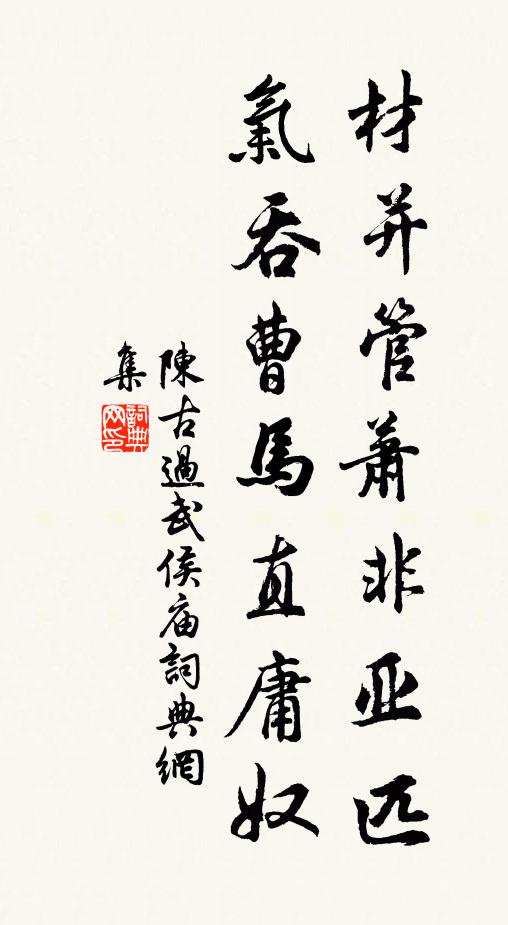 材并管蕭非亚匹
氣吞曹馬直庸奴
陳古過武侯庙詞典網
集
詞典
网印